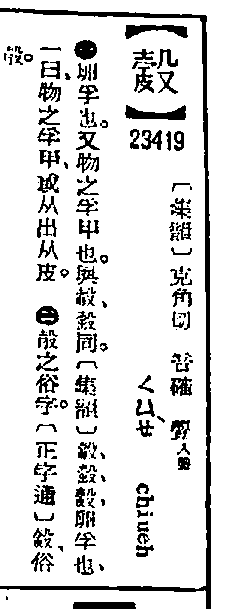 23419
〔集韻〕克角切 音確 覺入聲
ㄑㄩㄝˋ chiueh
㊀卵孚也。又物之孚甲也。與
同。〔集韻〕
卵孚也、
一曰、物之孚甲、或从出从皮。 ㊁
之俗字。〔正字通〕
俗